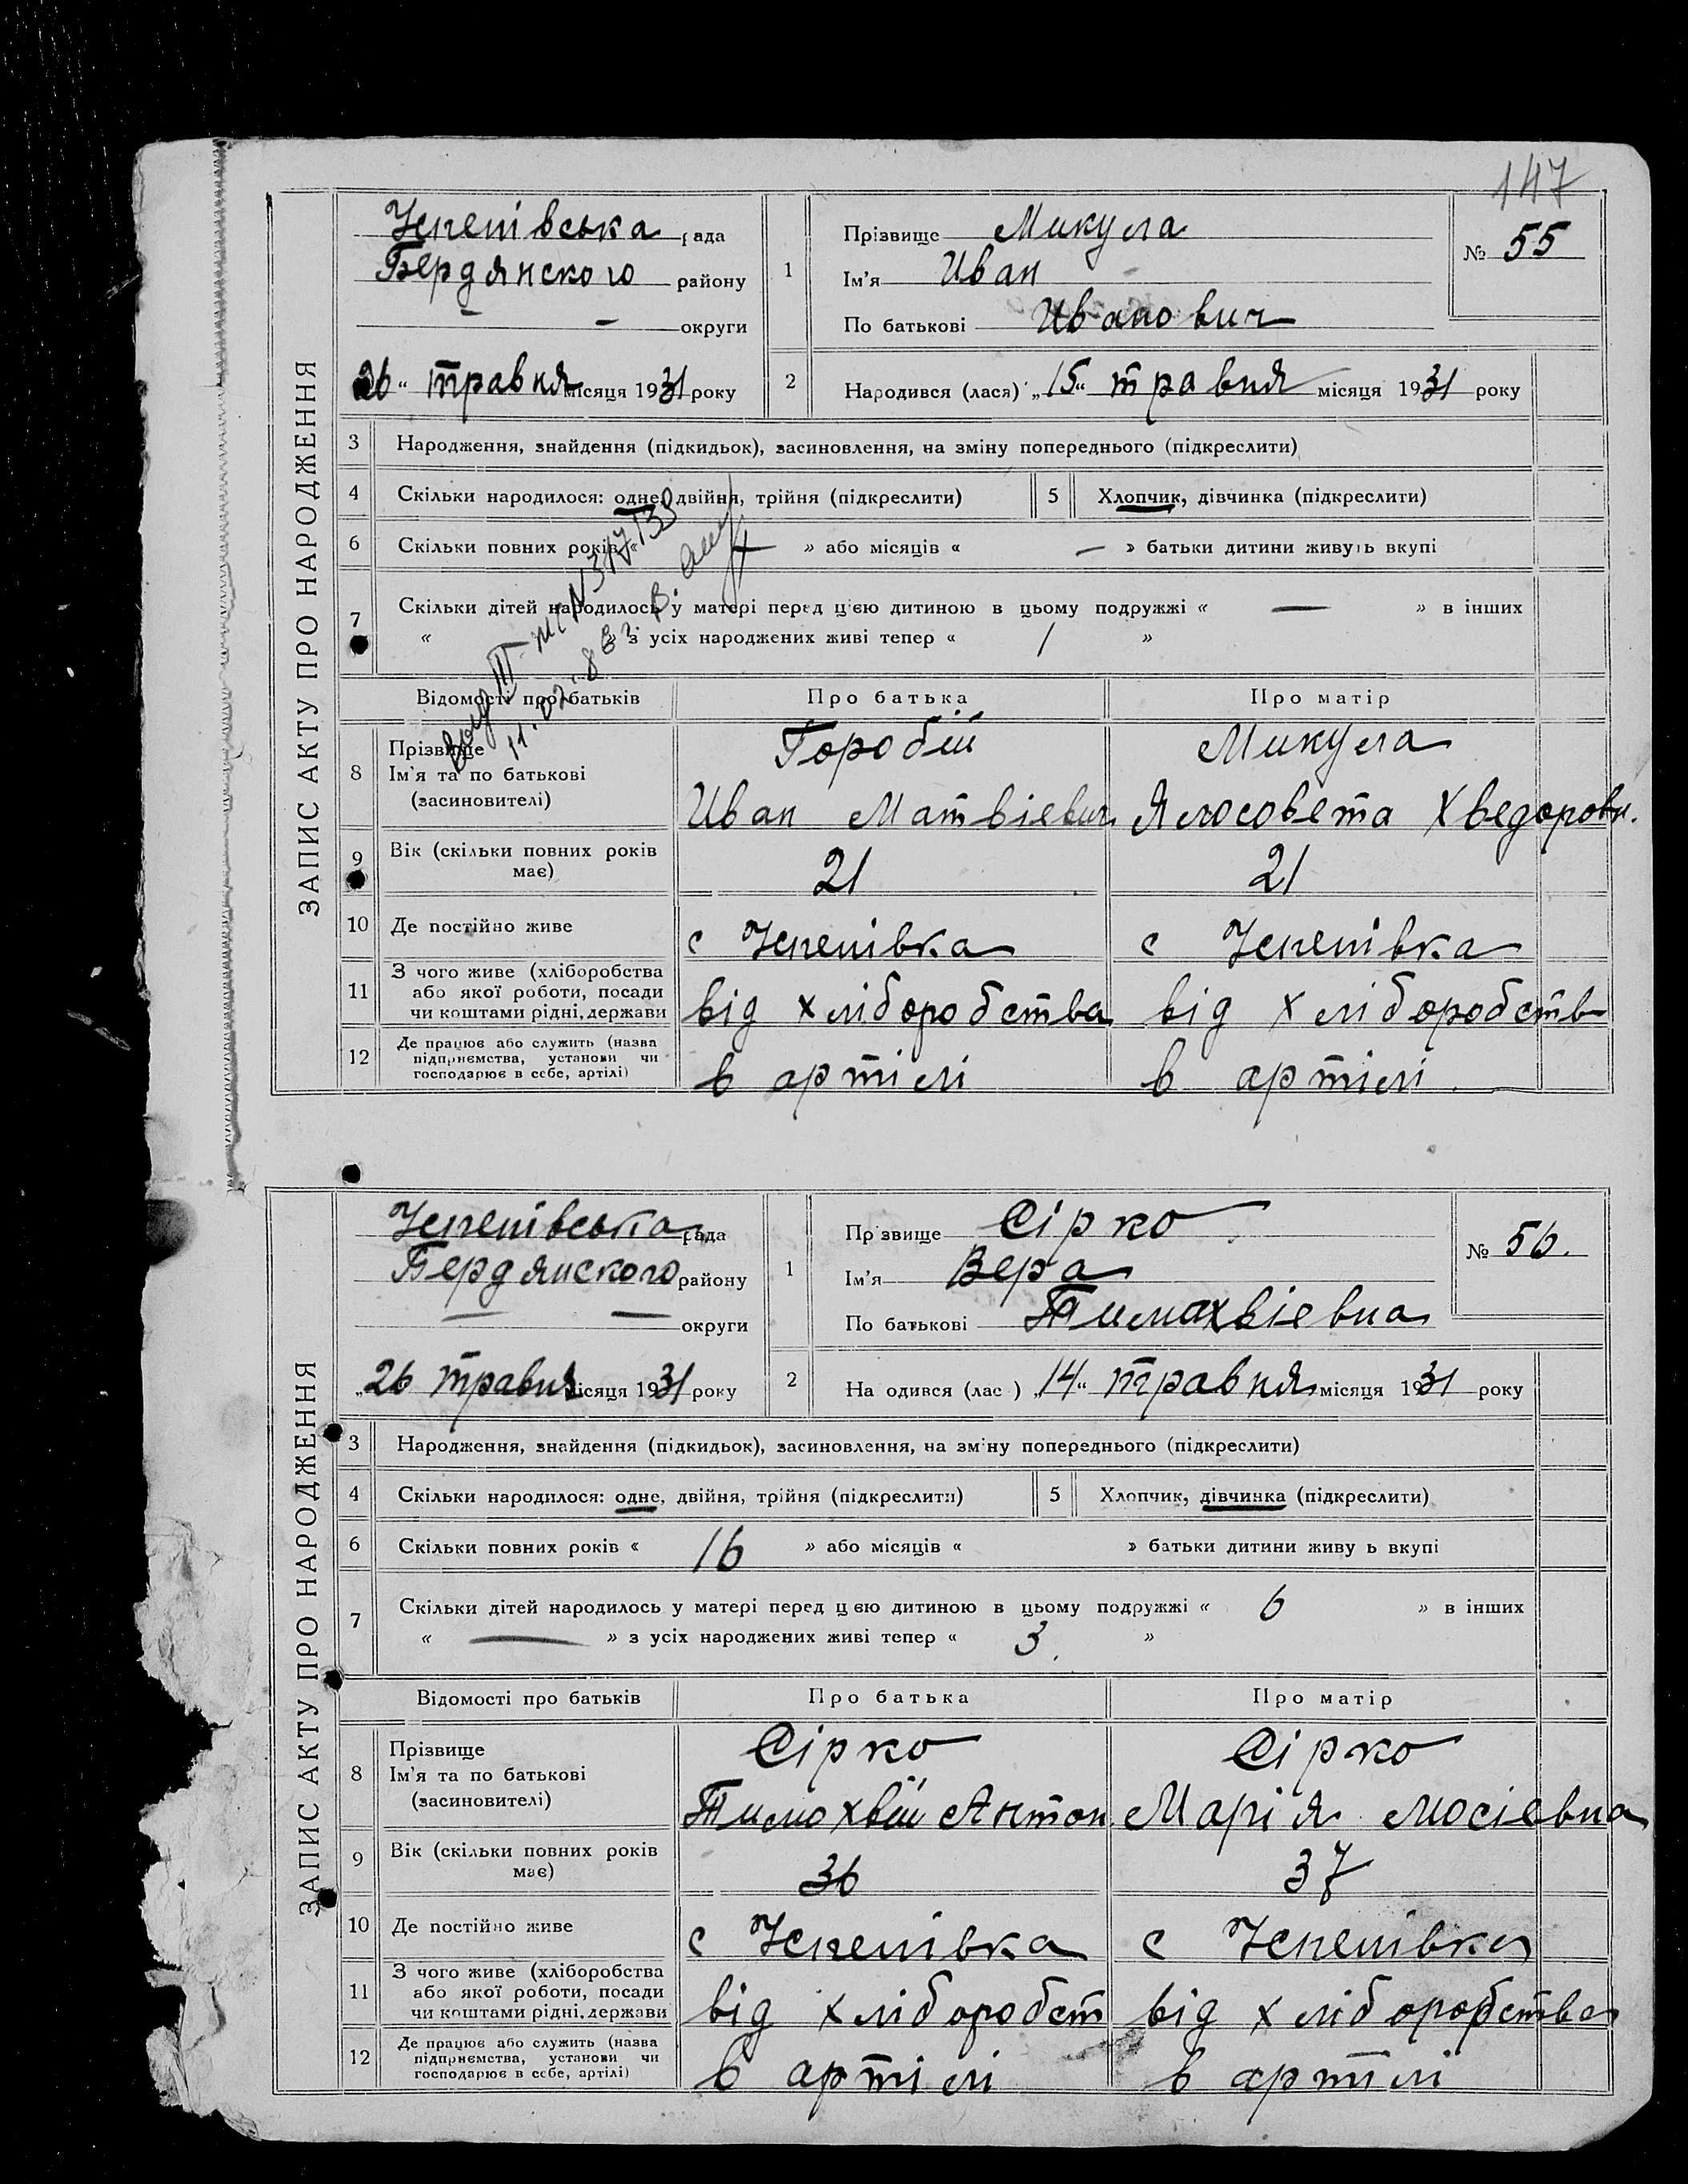 147
ЗАПИС АКТУ ПРО НАРОДЖЕННЯ
Успепівська рада
Бердянского району
— — округи
26 " травня місяця 1931 року
1
Прізвище Микула
Ім'я Иван
По батькові Иванович
№ 55
2
Народився (лася) „15" травня місяця 1931 року
3 Народження, знайдення (підкидьок), засиновлення, на зміну попереднього (підкреслити)
4 Скільки народилося: одне, двійня, трійня (підкреслити)
5 Хлопчик, дівчинка (підкреслити)
6 Скільки повних років « — » або місяців « — » батьки дитини живуть вкупі
7 Скільки дітей народилось у матері перед цією дитиною в цьому подружжі « — » в інших
« » з усіх народжених живі тепер « 1 »
Відомості про батьків Про батька Про матір
8 Прізвище
Ім'я та по батькові
(засиновителі)
Горобій
Иван Матвіевич
Микула
Ялосовета Хведоровн.
9 Вік (скільки повних років має) 21 21
10 Де постійно живе с Успепівка с Успепівка
11 З чого живе (хліборобства
або якої роботи, посади
чи коштами рідні, держави
від хліборобства від хліборобств
12 Де працює або служить (назва
підприємства, установи чи
господарює в себе, артілі)
в артілі в артілі
ЗАПИС АКТУ ПРО НАРОДЖЕННЯ
Успепівська рада
Бердянского району
— — округи
„26 травня місяця 1931 року
1
Прзвище Сірко
Ім'я Вера
По батькові Тимохвіевна
№ 56.
2
На одився (лас ) „14" травня місяця 1931 року
3 Народження, знайдення (підкидьок), засиновлення, на зміну попереднього (підкреслити)
4 Скільки народилося: одне, двійня, трійня (підкреслити)
5 Хлопчик, дівчинка (підкреслити)
6 Скільки повних років « 16 » або місяців « » батьки дитини живу ь вкупі
7 Скільки дітей народилось у матері перед ц ею дитиною в цьому подружжі « 6 » в інших
« — » з усіх народжених живі тепер « 3. »
Відомості про батьків Про батька Про матір
8 Прізвище
Ім'я та по батькові
(засиновителі)
Сірко
Тимохвій Антон.
Сірко
Марія Мосіевна
9 Вік (скільки повних років має) 36 37
10 Де постійно живе с Успепівка с Успепівка
11 З чого живе (хліборобства
або якої роботи, посади
чи коштами рідні, держави
від хліборобст від хліборобства
12 Де працює або служить (назва
підприємства, установи чи
господарює в себе, артілі)
в артілі в артілі